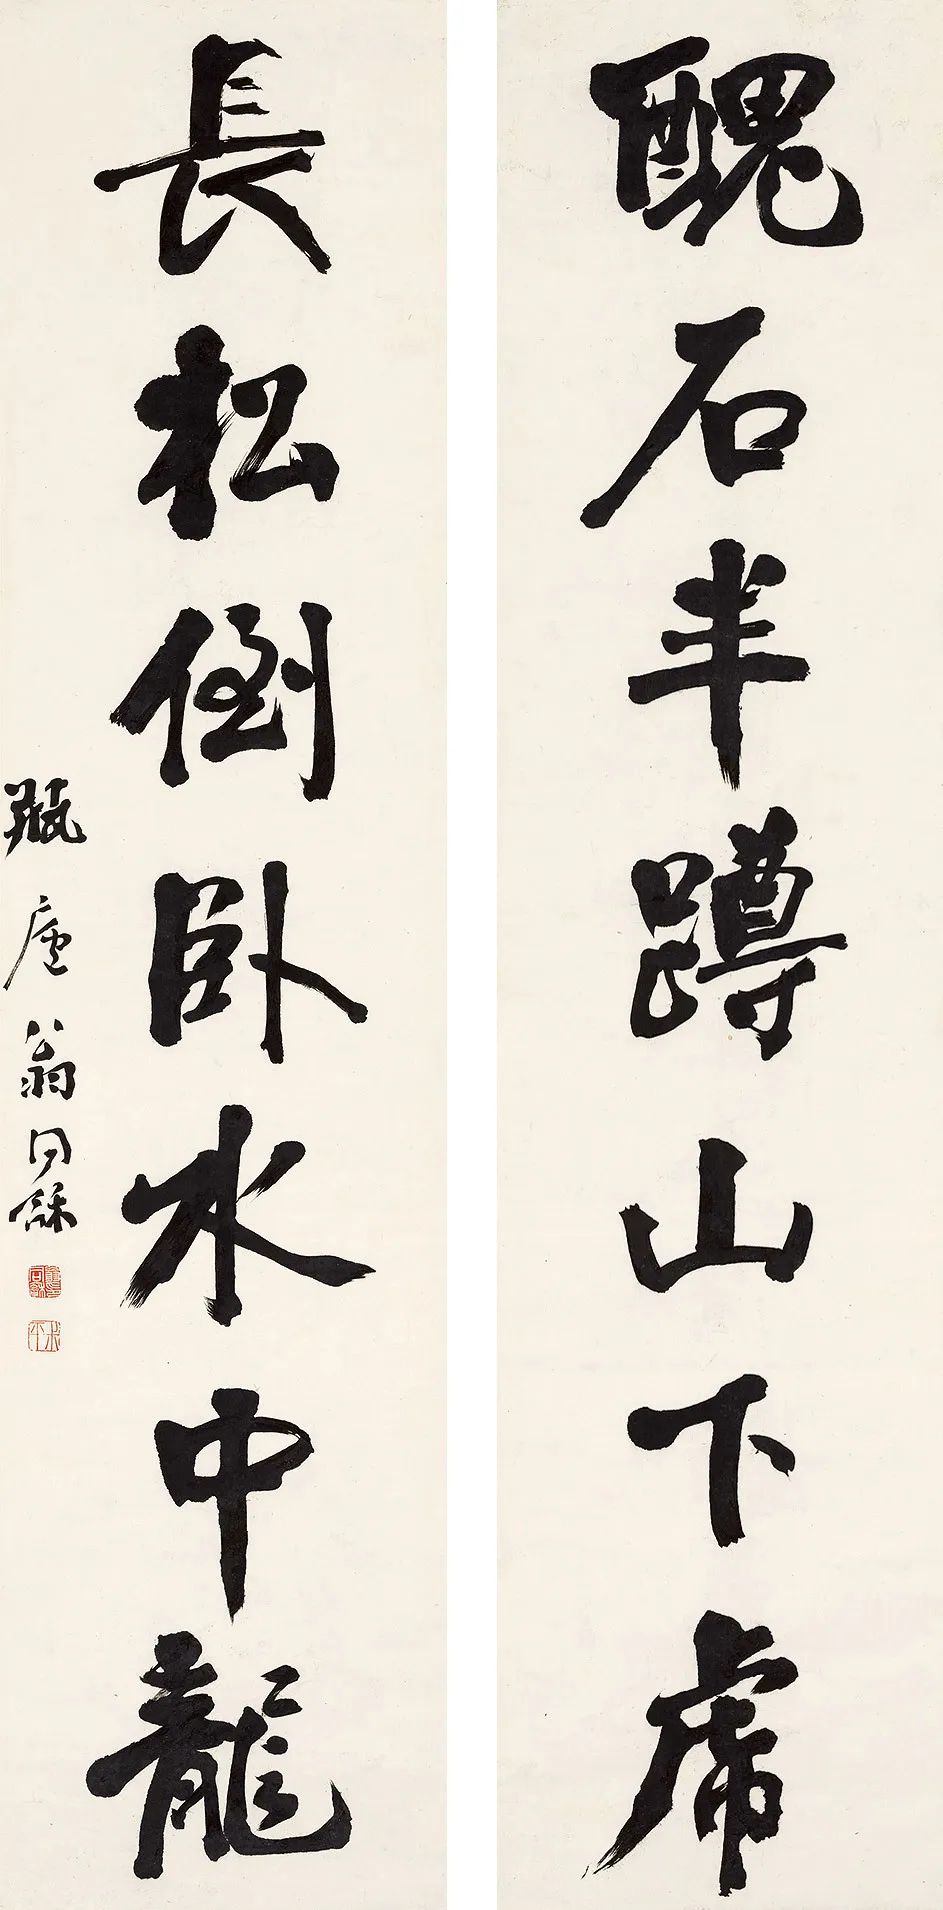 醜石半蹲山下虎
長松倒臥水中龍
瓶廬翁同龢